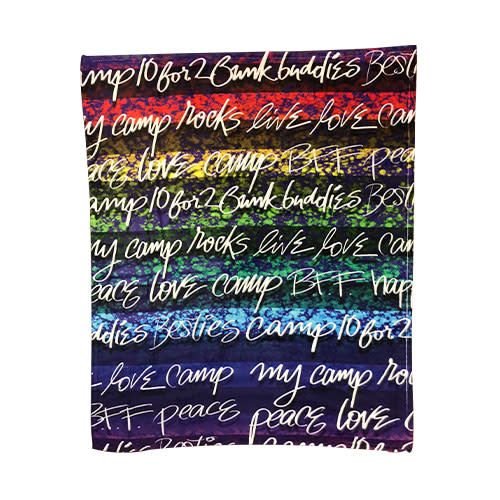 amp 10 for 2 Bunk buddies Besties
my camp rocks live love cam
peace love camp BFF pea
amp 10 for 2 Bunk buddies Besti
my camp rocks live love cam
eace love camp BFF happ
ddies Besties camp 10 for 2
love camp my camp roc
B.F.F. peace peace love c
ddies Besties camp 10 for 2